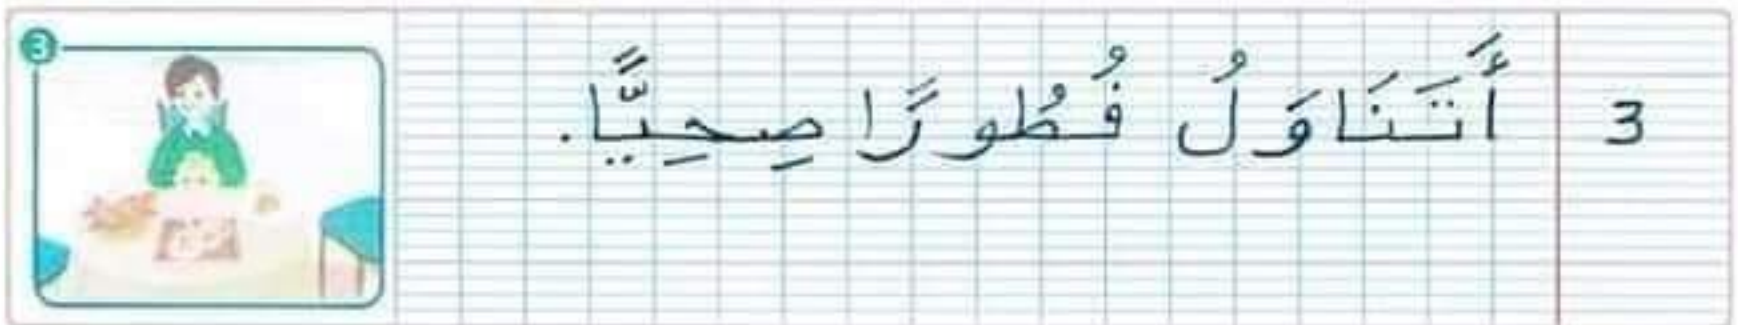 3 أَتَنَاوَلُ فُطُورًا صِحِيًّا.
3